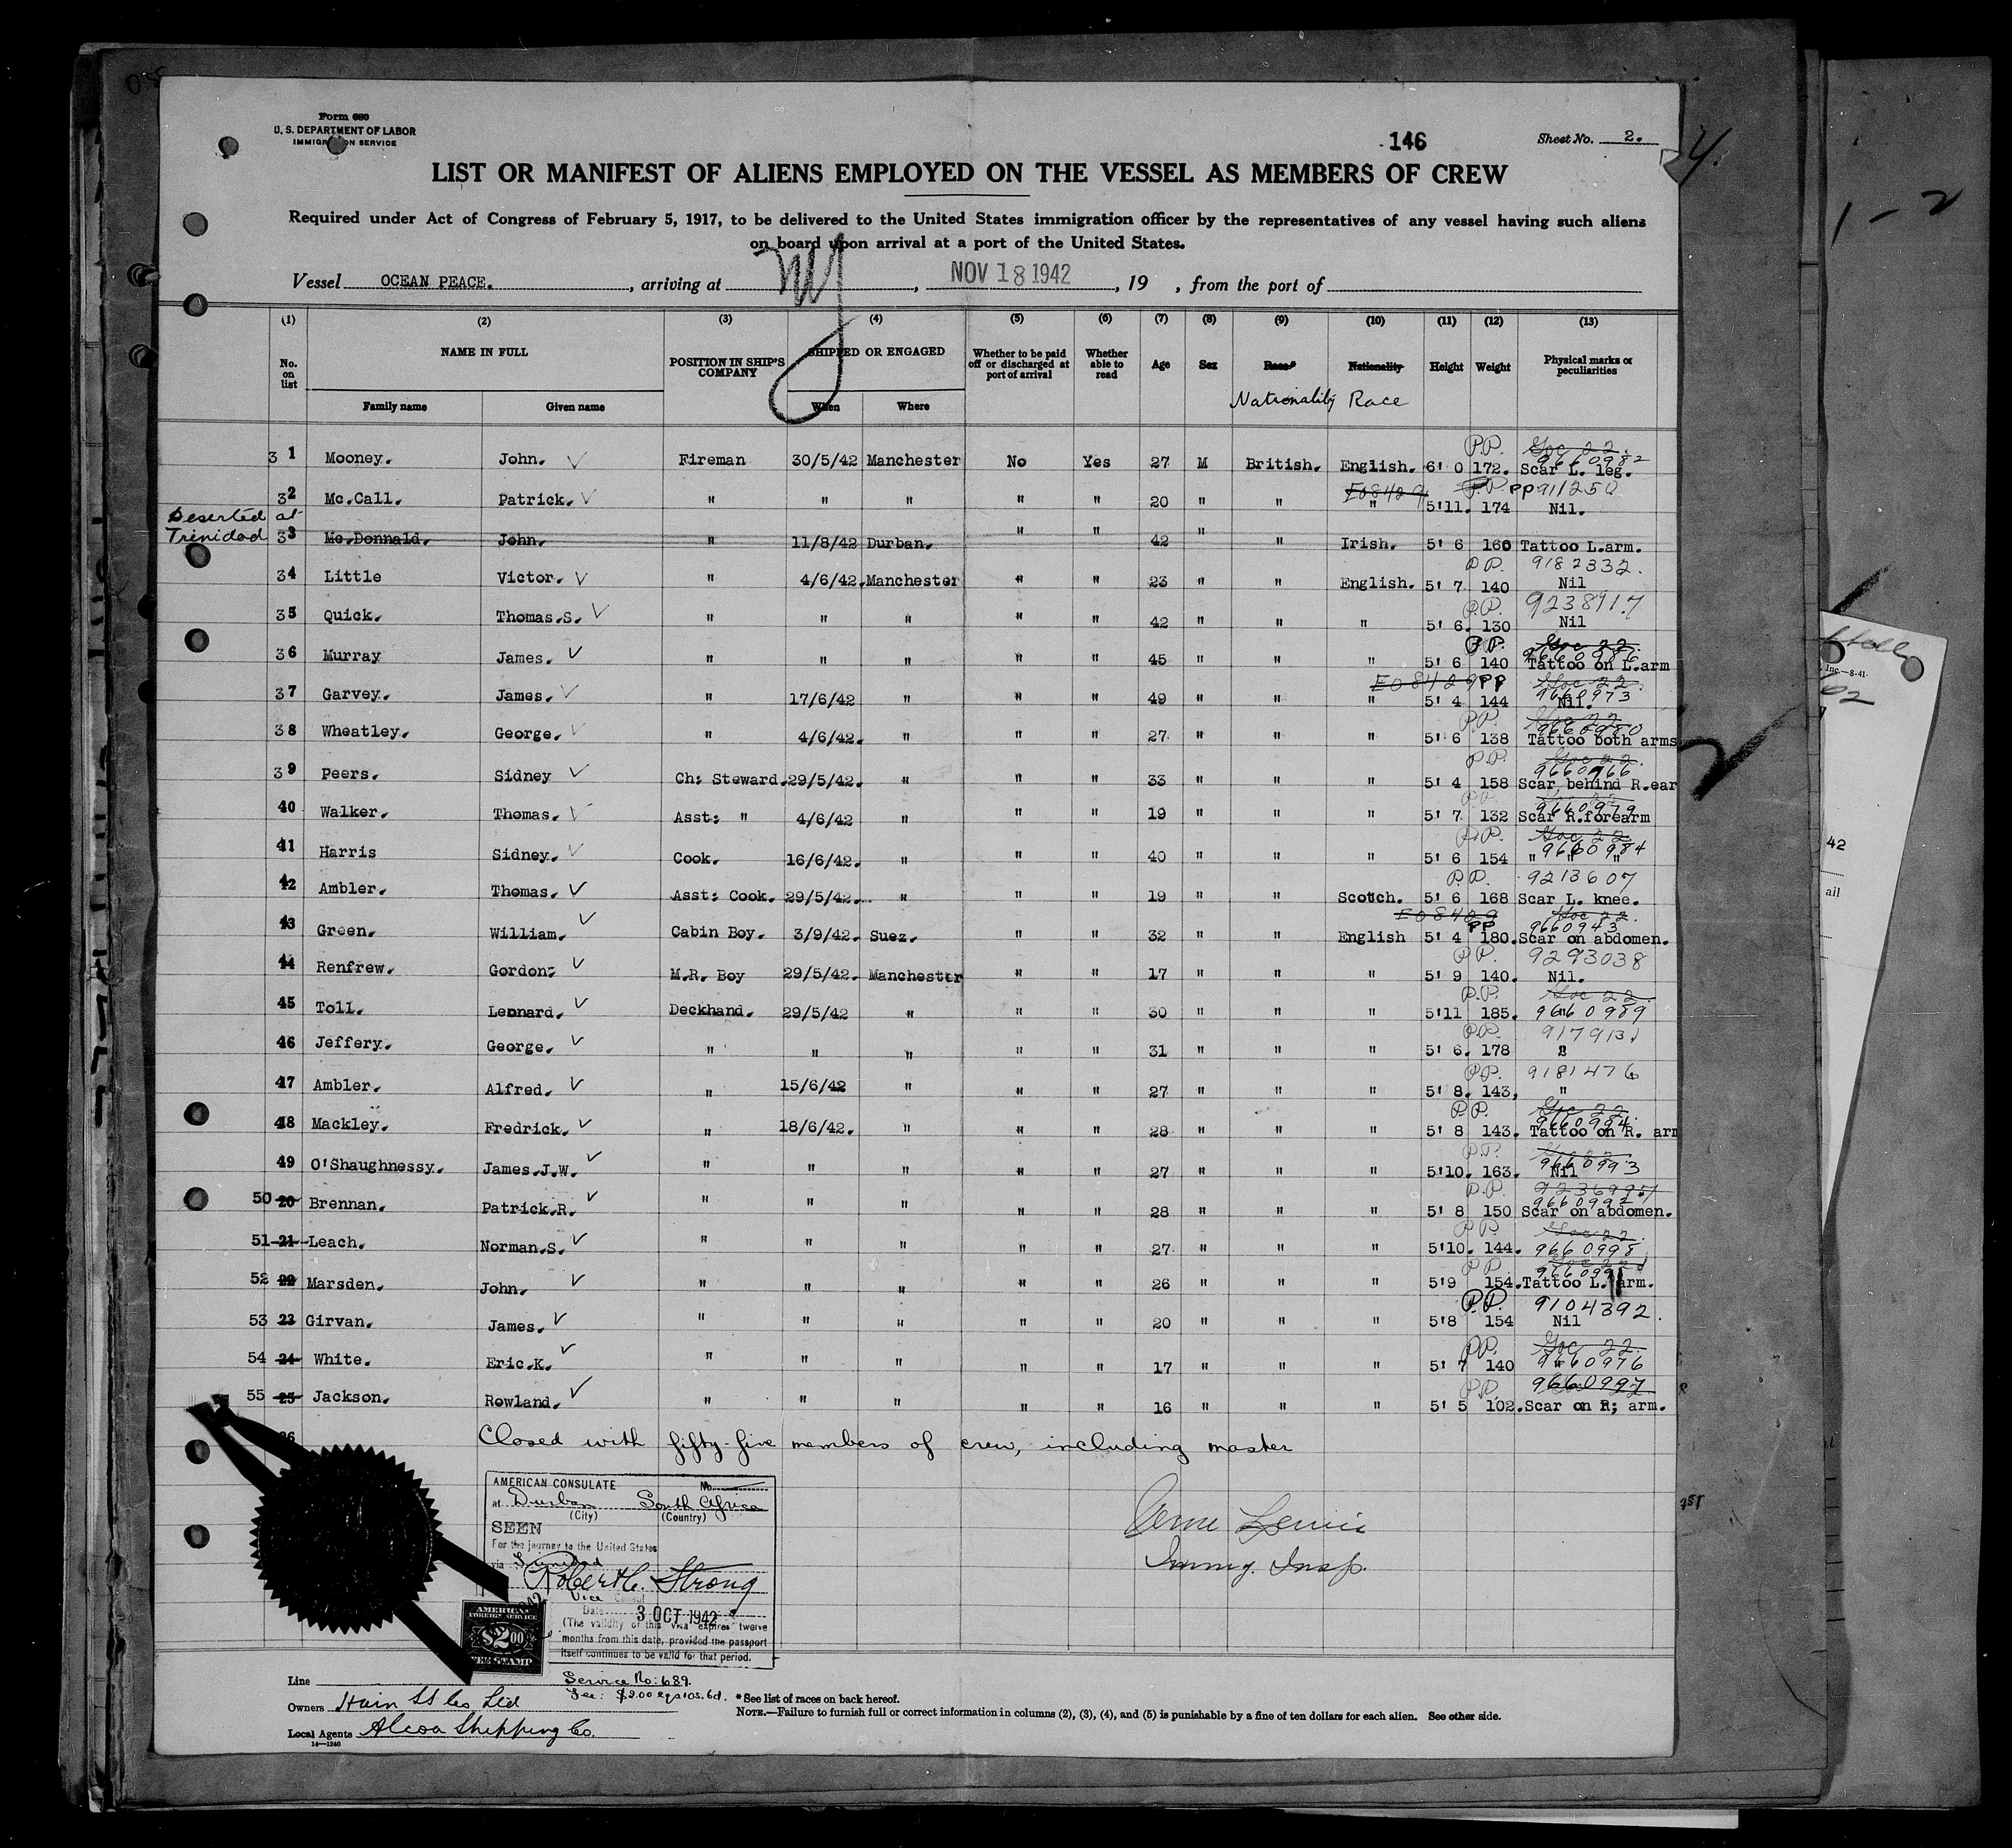 Form 680
U. S. DEPARTMENT OF LABOR
IMMIGRATION SERVICE
146
Sheet No. 2.
4.
LIST OR MANIFEST OF ALIENS EMPLOYED ON THE VESSEL AS MEMBERS OF CREW
Required under Act of Congress of February 5, 1917, to be delivered to the United States immigration officer by the representatives of any vessel having such aliens
on board upon arrival at a port of the United States.
Vessel OCEAN PEACE. , arriving at NY , NOV 18 1942 , 19 , from the port of
(1) (2) (3) (4) (5) (6) (7) (8) (9) (10) (11) (12) (13)
No. on list NAME IN FULL POSITION IN SHIP'S COMPANY SHIPPED OR ENGAGED Whether to be paid off or discharged at port of arrival Whether able to read Age Sex Race* Nationality Height Weight Physical marks or peculiarities
Family name Given name When Where Nationality Race
31 Mooney. John. ✓ Fireman 30/5/42 Manchester No Yes 27 M British. English. 6' 0 172. P.P. Goc 22. 9660982 Scar L. leg.
32 Mc.Call. Patrick. ✓ " " " " " 20 " " E08429 " 5'11. 174 P.P. PP911250 Nil.
Deserted at Trinidad 33 Mc.Donnald. John. " 11/8/42 Durban. " " 42 " " Irish. 5' 6 160 Tattoo L.arm.
34 Little Victor. ✓ " 4/6/42. Manchester " " 23 " " English. 5' 7 140 P.P. 9182332. Nil
35 Quick. Thomas.S. ✓ " " " " " 42 " " " 5' 6. 130 P.P. 9238917 Nil
36 Murray James. ✓ " " " " " 45 " " " 5' 6 140 P.P. Goc 22. 9660986 Tattoo on L.arm
37 Garvey. James. ✓ " 17/6/42 " " " 49 " " E08429 " 5' 4 144 PP Goc 22. 9660973 Nil.
38 Wheatley. George. ✓ " 4/6/42. " " " 27 " " " 5' 6 138 P.P. Goc 22 9660980 Tattoo both arms
39 Peers. Sidney ✓ Ch: Steward. 29/5/42. " " " 33 " " " 5' 4 158 P.P. Goc 22. 9660966 Scar behind R.ear
40 Walker. Thomas. ✓ Asst: " 4/6/42 " " " 19 " " " 5' 7 132 P.P. 9660979 Scar R.forearm
41 Harris Sidney. ✓ Cook. 16/6/42. " " " 40 " " " 5' 6 154 P.P. Goc 22 9660984 " " "
42 Ambler. Thomas. ✓ Asst: Cook. 29/5/42. " " " 19 " " Scotch. 5' 6 168 P.P. 9213607 Scar L. knee.
43 Green. William. ✓ Cabin Boy. 3/9/42. Suez. " " 32 " " English 5' 4 180. E08429 PP Goc 22. 9660943 Scar on abdomen.
44 Renfrew. Gordon: ✓ M.R. Boy 29/5/42. Manchester " " 17 " " " 5' 9 140. P.P. 9293038 Nil.
45 Toll. Leonard. ✓ Deckhand. 29/5/42 " " " 30 " " " 5'11 185. P.P. Goc 22. 9660989 "
46 Jeffery. George. ✓ " " " " " 31 " " " 5' 6. 178 P.P. 917913 "
47 Ambler. Alfred. ✓ " 15/6/42 " " " 27 " " " 5' 8. 143, P.P. 9181476 "
48 Mackley. Fredrick. ✓ " 18/6/42. " " " 28 " " " 5' 8 143. P.P. Goc 22. 9660994 Tattoo on R. arm
49 O'Shaughnessy. James.J.W. ✓ " " " " " 27 " " " 5'10. 163. P.P. 9660993 Nil
50 20 Brennan. Patrick.R. ✓ " " " " " 28 " " " 5' 8 150 P.P. 9236997 9660992 Scar on abdomen.
51 21 Leach. Norman.S. ✓ " " " " " 27 " " " 5'10. 144. P.P. Goc 22. 9660998
52 22 Marsden. John. ✓ " " " " " 26 " " " 5'9 154. P.P. Tattoo L. arm.
53 23 Girvan. James. ✓ " " " " " 20 " " " 5'8 154 P.P. 9104392. Nil
54 24 White. Eric.K. ✓ " " " " " 17 " " " 5' 7 140 PP. Goc 22. 9660976 "
55 25 Jackson. Rowland. ✓ " " " " " 16 " " " 5' 5 102. P.P. 9660997 Scar on R; arm.
26 Closed with fifty-five members of crew, including master
AMERICAN CONSULATE No.
at Durban South Africa
(City) (Country)
SEEN
For the journey to the United States
via Trinidad
Robert C. Strong
Vice Consul
Date 3 OCT 1942
(The validity of this visa expires twelve
months from this date, provided the passport
itself continues to be valid for that period.
AMERICAN
FOREIGN SERVICE
$2.00
FEE STAMP
Lewis
Immig. Insp.
Line
Service No: 689.
Fee: $2.00 eqs 10s. 6d.
Owners Hain SS Co Ltd
Local Agents Alcoa Shipping Co.
14—1240
* See list of races on back hereof.
NOTE.—Failure to furnish full or correct information in columns (2), (3), (4), and (5) is punishable by a fine of ten dollars for each alien. See other side.
1 - 2
Inc.—8-41
42
ail